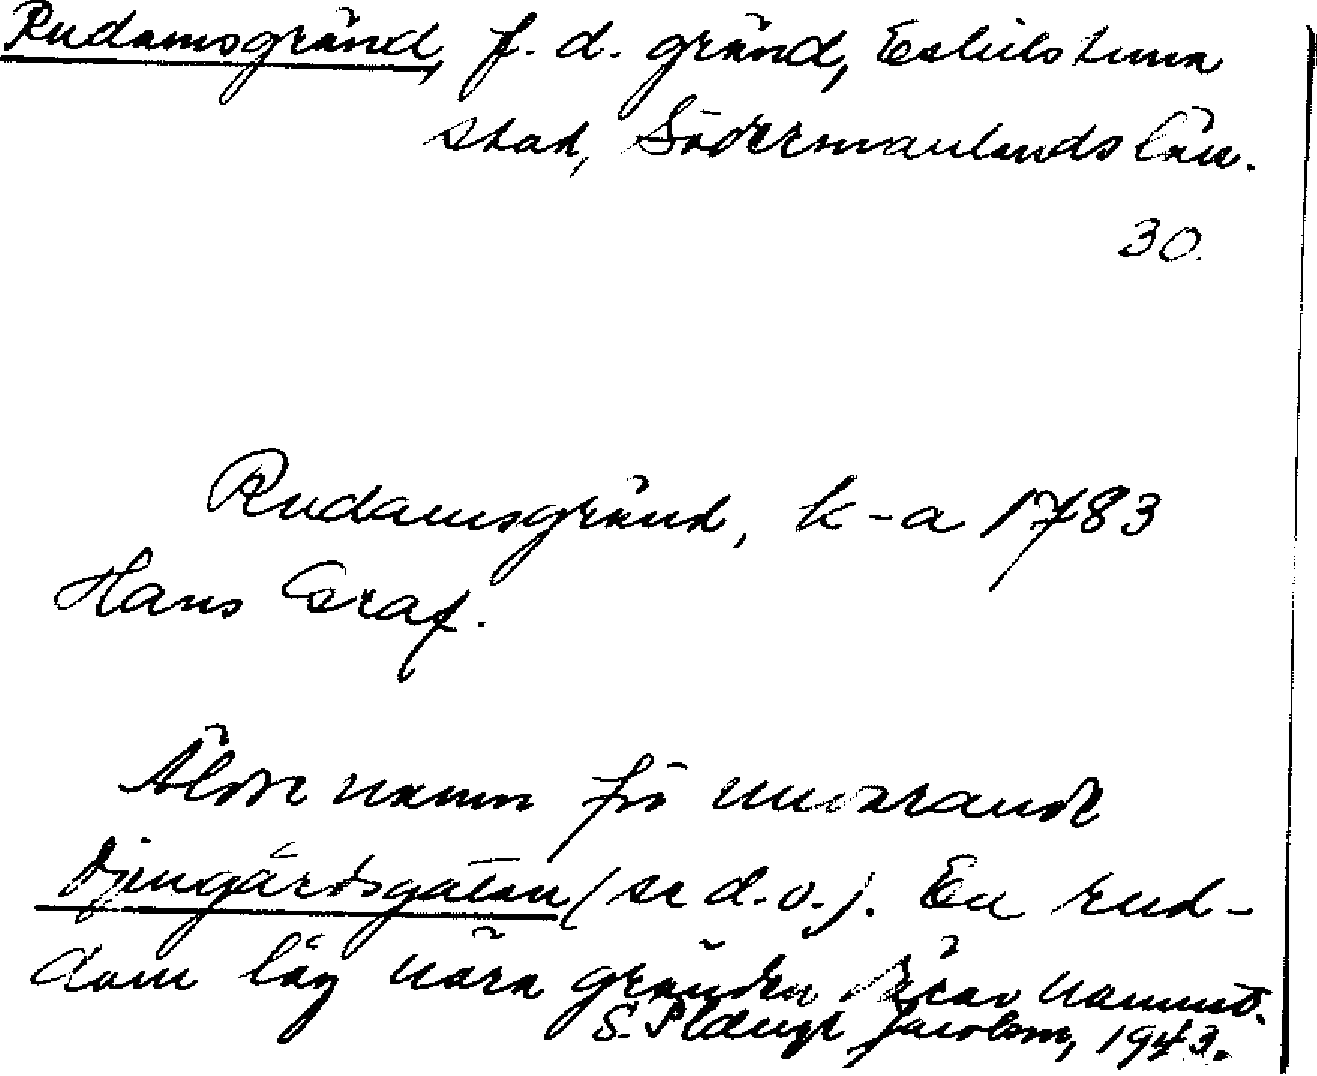 Rudamsgränd, f. d. gränd, Eskilstuna
stad, Södermanlands län.
30.
Rudamsgränd, k-a 1783
Hans Graf.
Äldre namn för nuvarande
Djurgårdsgatan (se d.o.). En rud-
dam låg nära gränden därav namnet.
S. Jacobson, 1943.